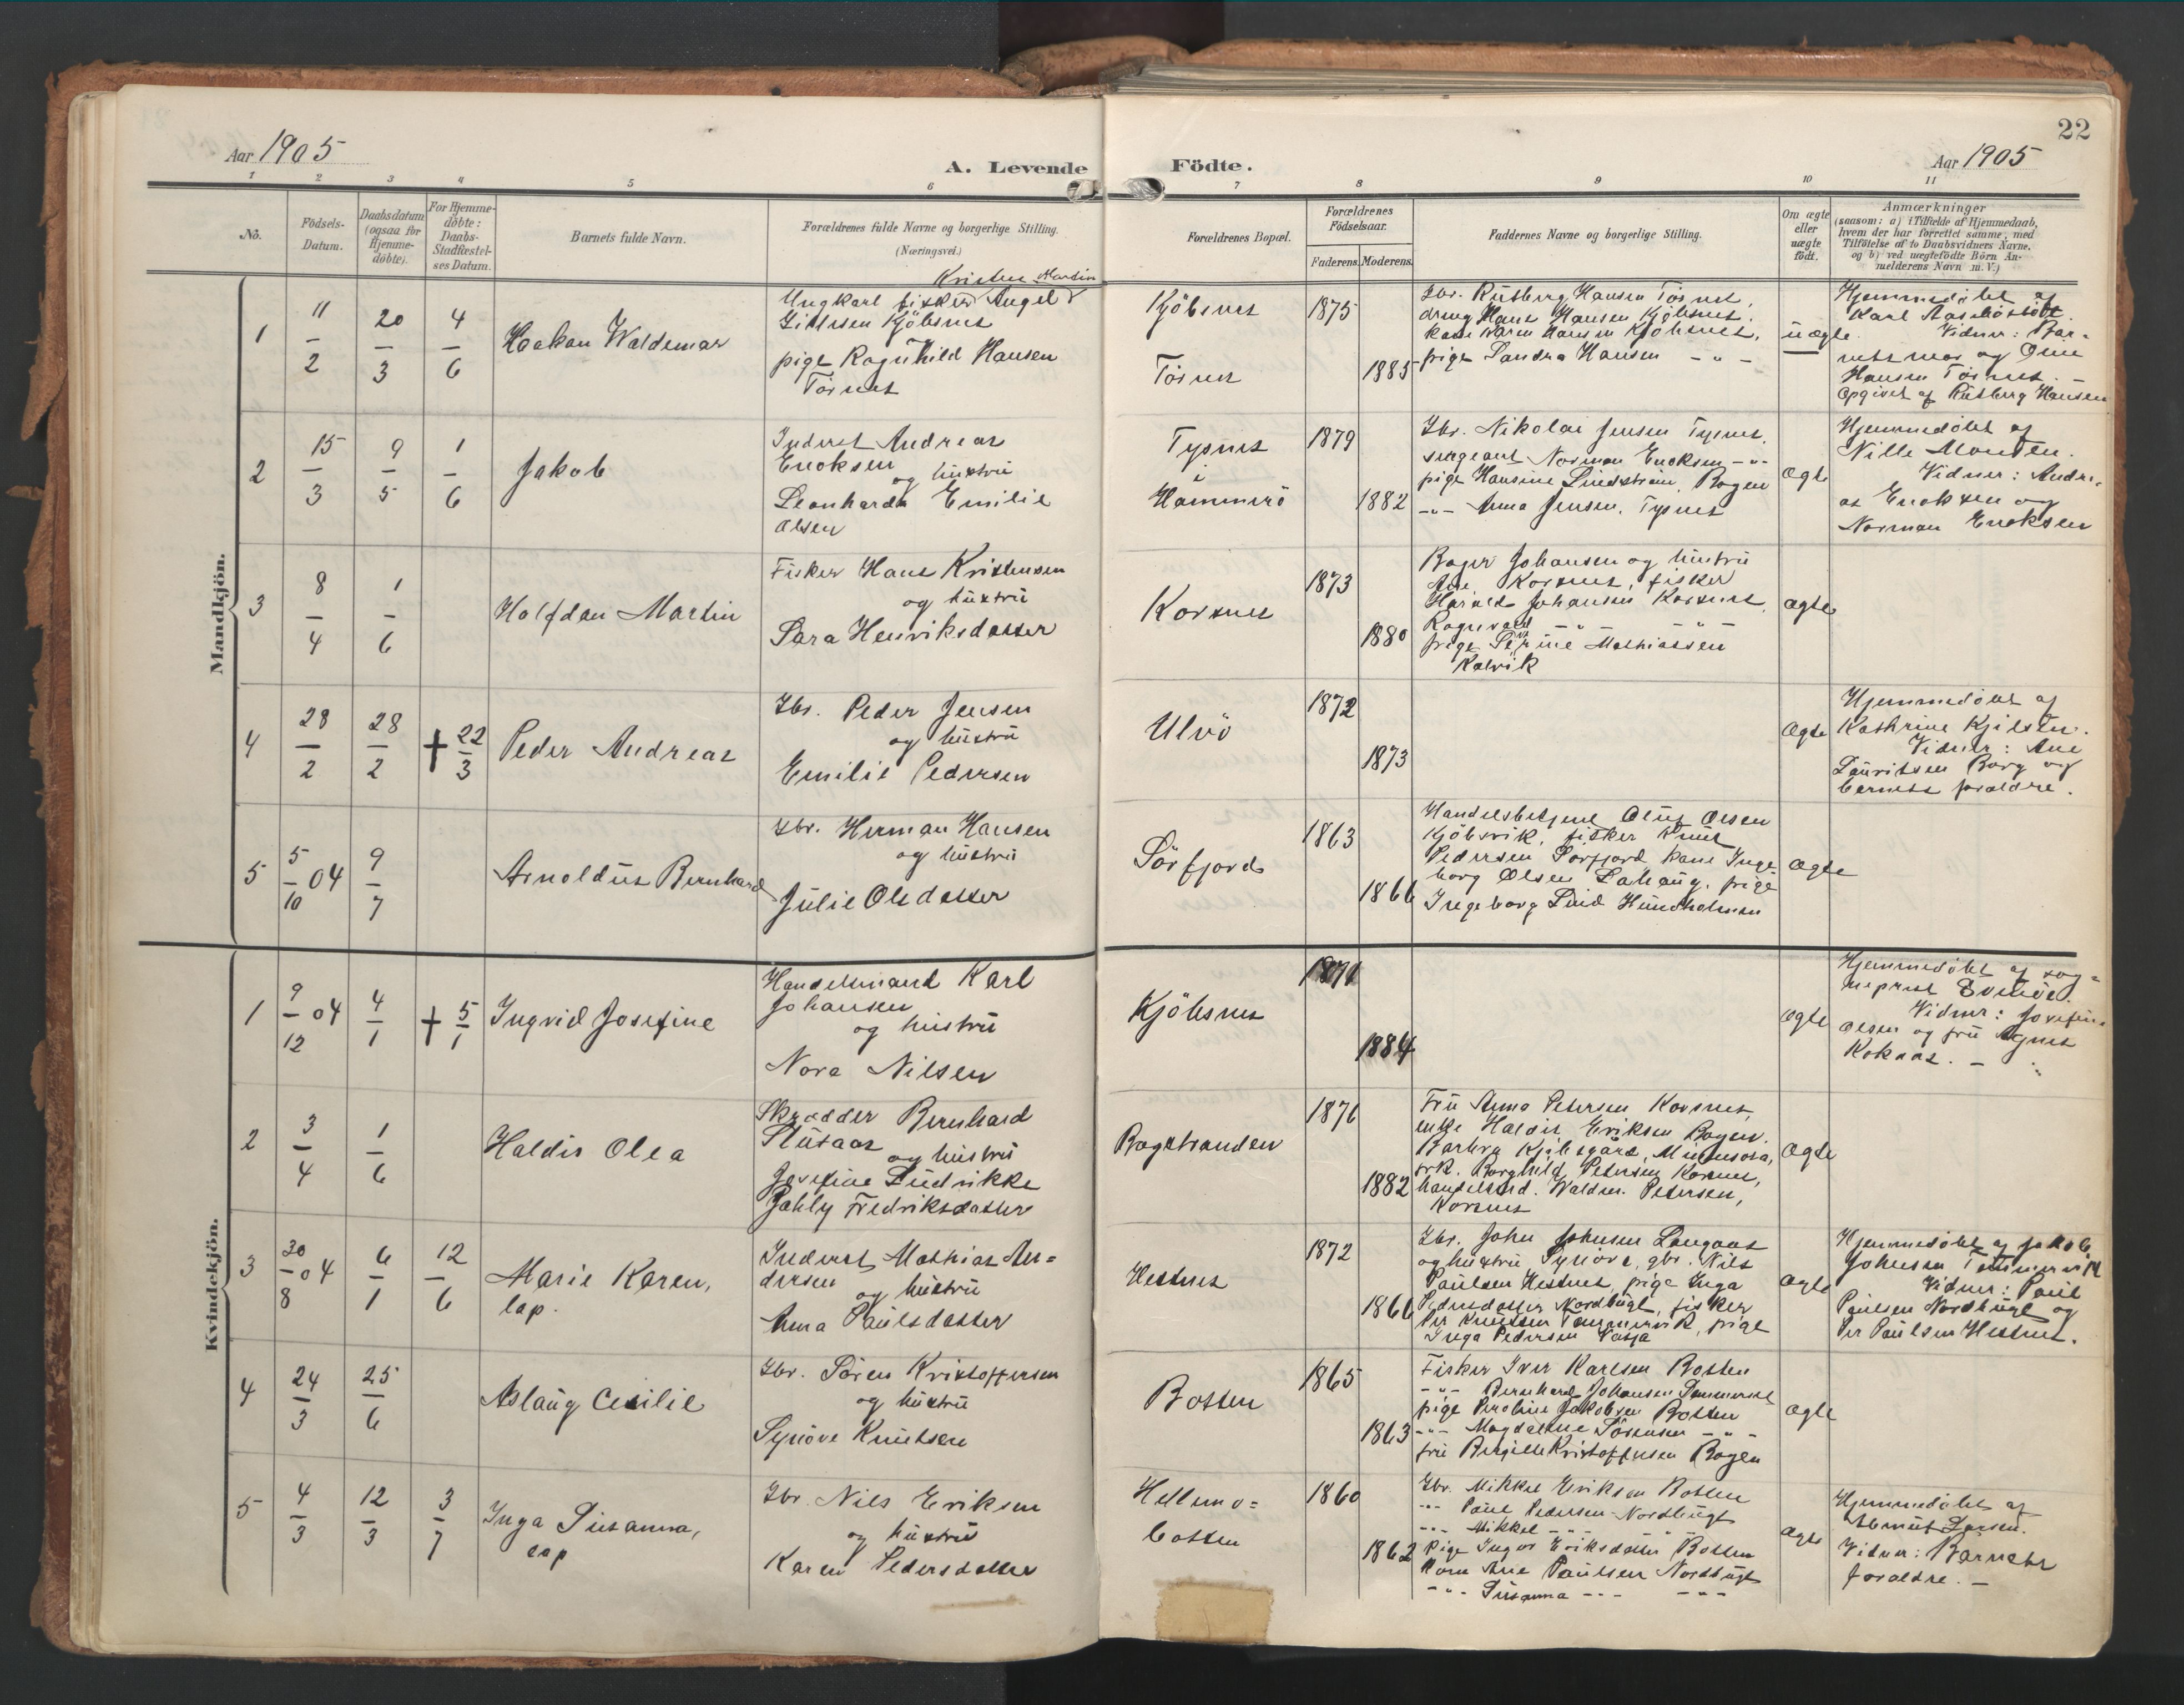 22
Aar 1905
A. Levende Fødte.
Aar 1905
1 2 3 4 5 6 7 8 9 10 11
No.
Fødsels-
Datum.
Daabsdatum
(ogsaa for
Hjemme-
døbte).
For Hjemme-
døbte:
Daabs-
Stadfæstel-
ses Datum.
Barnets fulde Navn.
Forældrenes fulde Navne og borgerlige Stilling.
(Næringsvei.)
Forældrenes Bopæl.
Forældrenes
Fødselsaar.
Faderens. Moderens.
Faddernes Navne og borgerlige Stilling.
Om ægte
eller
uægte
født.
Anmærkninger
(saasom: a) i Tilfælde af Hjemmedaab,
hvem der har forrettet samme, med
Tilføielse af to Daabsvidners Navne,
og b) ved uægtefødte Børn An-
melderens Navn m.V.)
Mandkjøn.
1
11/2
20/3
4/6
Haakon Waldemar
Kristen Martin
Ungkarl fisker Angel
Kjöbsnes
pige Ragnhild Hansen
Törnes
Kjöbsnes
Törnes
1875
1885
Gbr. Rutberg Hansen Törnes,
dreng Hans Hansen Kjöbsnes,
kone Karen Hansen Kjöbsnes,
pige Sandra Hansen - " -
uægte
Hjemmedöbt af
Karl
Vidner: Bar-
nets mor og
Hansen Törnes. -
Opgivet af Rutberg Hansen
2
15/3
9/5
1/6
Jakob
Inderst Andreas
Enoksen
og hustru
Leonharda Emilie
Olsen
Tysnes
i
Hammerö
1879
1882
Gbr. Nikolai Jensen Tysnes,
sergeant Norman Enoksen - " -
pige Hansine Lindström, Bogen
- " - Anna Jensen, Tysnes
ægte
Hjemmedöbt af
Nille
Vidner: Andre-
as Enoksen og
Norman Enoksen
3
8/4
1/6
Halfdan Martin
Fisker Hans Kristensen
og hustru
Sara Henriksdatter
Korsnes
1873
1880
Roger Johansen og hustru
Ane Korsnes, fisker
Harald Johansen Korsnes,
Ragnvald - " - - " -
pige Mathiassen
Kalvik
ægte
4
28/2
28/2
† 22/3
Peder Andreas
Gbr. Peder Jensen
og hustru
Emilie Pedersen
Ulvö
1872
1873
ægte
Hjemmedöbt af
Kathrine
Vidner: Ane
Lauritsen Borg og
barnets forældre.
5
5/10 04
9/7
Arnoldus Bernhard
Gbr. Herman Hansen
og hustru
Julie Olsdatter
Sörfjord
1863
1866
Handelsbetjent Oluf Olsen
Kjöbsvik, fisker Knut
Pedersen Sörfjord, kone Inge-
borg Olsen, pige
Ingeborg Lind Hundholmen
ægte
Kvindekjøn.
1
9/12 04
4/1
† 5/1
Ingrid Josefine
Handelsmand Karl
Johansen
og hustru
Nora Nilsen
Kjöbsnes
1871
1884
ægte
Hjemmedöbt af sog-
neprest
Vidner: Josefine
Olsen og fru Agnes
Kokaas. -
2
3/4
1/6
Haldis Olea
Skrædder Bernhard
Slusaas
og hustru
Josefine Ludvikke
Fredriksdatter
Bogstranden
1876
1882
Fru Anna Petersen Korsnes,
enke Haldis Eriksen Bogen.
Barbra
Borghild Petersen Korsnes,
handelsmd. Waldm. Petersen,
Korsnes
ægte
3
30/8 04
6/1
12/6
Marie Karen,
lap.
Inderst Mathias An-
dersen
og hustru
Anna Paulsdatter
Hestnes
1872
1866
Gbr. John Johnsen Langaas
og hustru Synöve, gbr. Nils
Paulsen Hestnes, pige Inga
Pedersdatter Nordbugt, fisker
Per Knutsen Tømmervik, pige
Inga Pedersen
ægte
Hjemmedöbt af Jakob
Johnsen Tømmervik
Vidner: Paul
Paulsen Nordbugt og
Per Paulsen Hestnes.
4
24/3
25/6
Aslaug Cecilie
Gbr. Sören Kristoffersen
og hustru
Synöve Knutsen
Botten
1865
1863
Fisker Iver Karlsen Botten
- " - Bernhard Johansen
pige Peroline Jakobsen Botten
- " - Magdalene Sörensen - " -
fru Bergitte Kristoffersen Bogen
ægte
5
4/3
12/3
3/7
Inga Susanna,
lap
Gbr. Nils Eriksen
og hustru
Karen Pedersdatter
Hellemo-
botten
1860
1862
Gbr. Mikkel Eriksen Botten
- " - Paul Pedersen Nordbugt
- " - Mikkel - " - " -
Pige Inger Eriksdatter Botten
Kone Ane Paulsen Nordbugt
- " - Susanna - " - - " -
ægte
Hjemmedöbt af
Larsen.
Vidner: Barnets
forældre. -